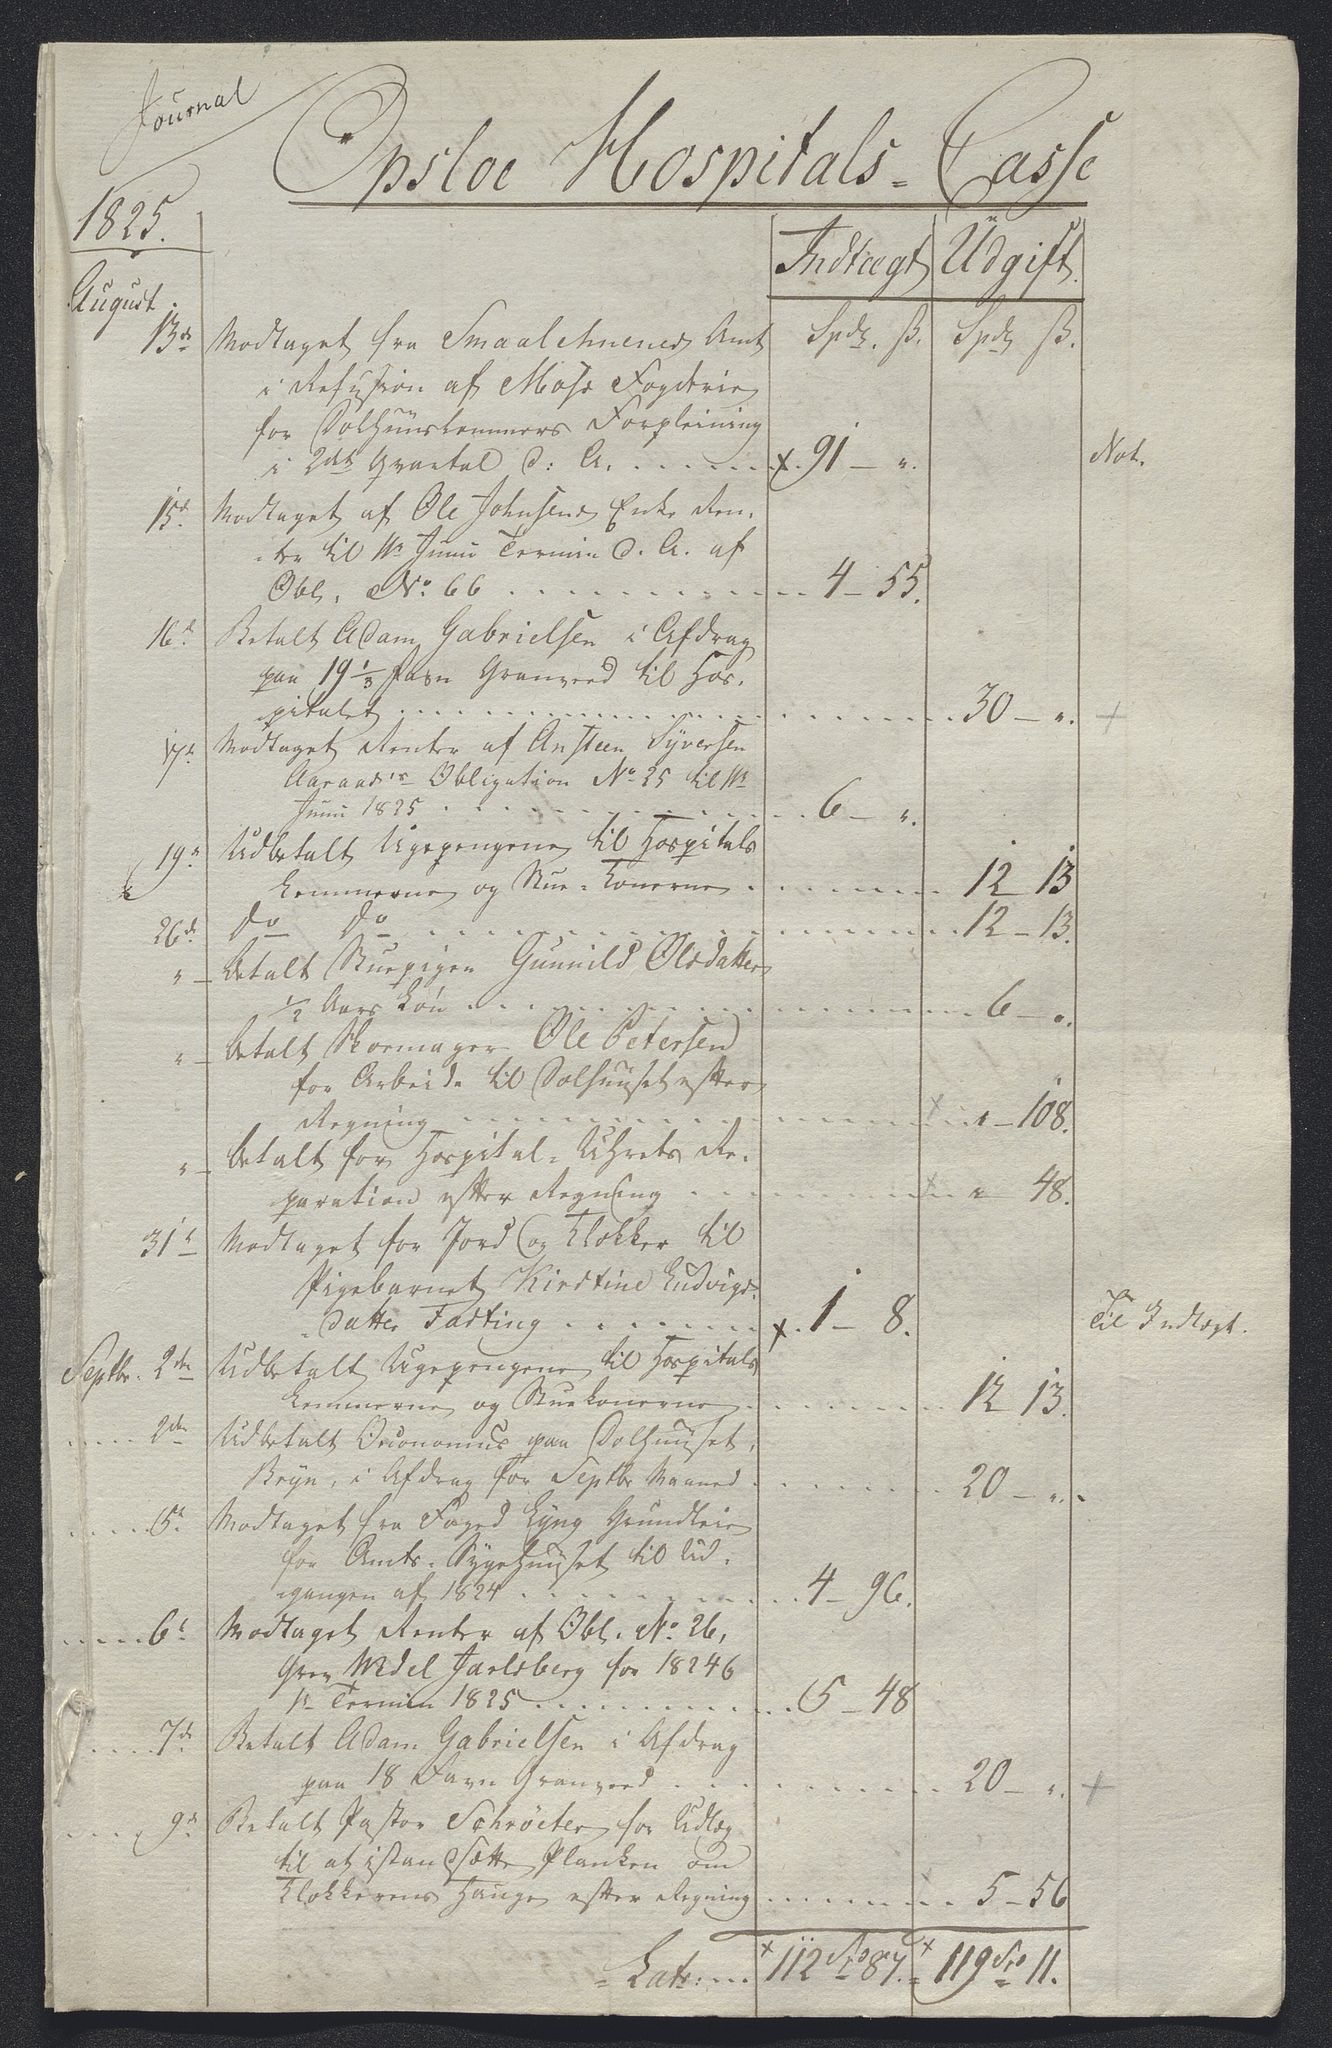 Journal
Opsloe Hospitals=Casse
1825.
Indtægt Udgift.
August.
Spdr. ß. Spdr ß.
13de Modtaget fra Smaalehnenes Amt
i Refusion af Moss Fogderie
for Dolhuuslemmers Forpleining
i 2det Qvartal d: A. x 91 - ". Not.
15de Modtaget af Ole Johnsens Enke Ren-
ter til 11te Junii Termin d. A. af
Obl. No. 66 4 - 55.
16de Betalt Adam Gabrielsen i Afdrag
paa 19 1/3 Favn Granveed til Hos-
pitalet 30 - ". +
17de Modtaget Renter af Ansteen Syversen
Aaraas's Obligation No 25 til 11te
Junii 1825 6 - ".
19de Udbetalt Ugepengene til Hospitals
Lemmerne og Stue=Konerne 12 13
26de do do 12 - 13.
" - betalt Stuepigen Gunnild Olsdatter
1/2 Aars Løn 6 - ".
" - betalt Skoemager Ole Petersen
for Arbeide til Dolhuuset efter
Regning x " - 108.
" - betalt for Hospital=Uhrets Re-
paration efter Regning x " 48.
31te Modtaget for Jord og Klokker til
Pigebarnet Kirstine Ludvigs-
datter Fasting x 1 - 8. Til Indtægt.
Septbr. 2den Udbetalt Ugepengene til Hospitals
Lemmerne og Stuekonerne 12 13.
2den Udbetalt Oeconomus paa Dolhuuset,
Bryn, i Afdrag for Septbr Maaned 20 - ".
5te Modtaget fra Foged Lyng Grundleie
for Amts=Sygehuuset til Ud-
gangen af 1824 4 - 96.
6te Modtaget Renter af Obl. No. 26,
Grev Wedel Jarlsberg for 1824 &
1te Termin 1825 5 - 48
7de Betalt Adam Gabrielsen i Afdrag
paa 18 Favn Granveed 20 - ". +
9de Betalt Pastor Schrøeter for Udlæg
til at istandsætte Planken om
Klokkerens Hauge efter Regning 5 - 56
Lats: x 112 Spd 87. x 119 Spd 11.